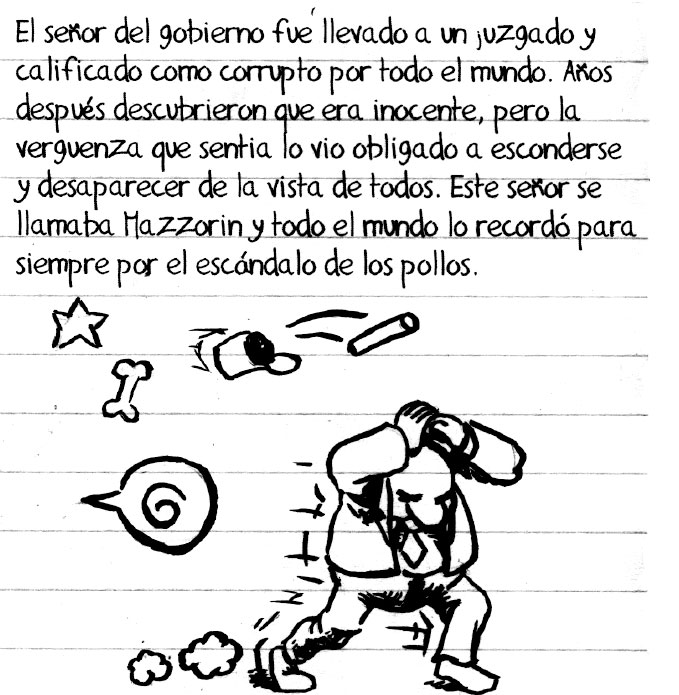 El señor del gobierno fue llevado a un juzgado y
calificado como corrupto por todo el mundo. Años
después descubrieron que era inocente, pero la
verguenza que sentia lo vio obligado a esconderse
y desaparecer de la vista de todos. Este señor se
llamaba Mazzorin y todo el mundo lo recordó para
siempre por el escándalo de los pollos.